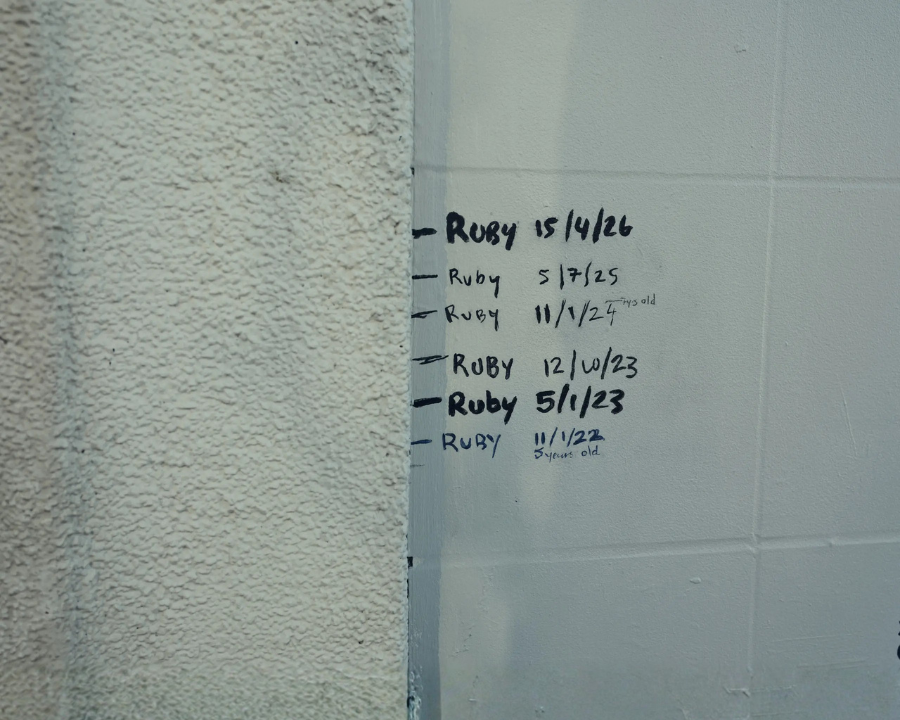 RUBY 15/4/26
Ruby 5/7/25
RUBY 11/1/24 7yrs old
RUBY 12/10/23
Ruby 5/1/23
RUBY 11/1/22
5 years old